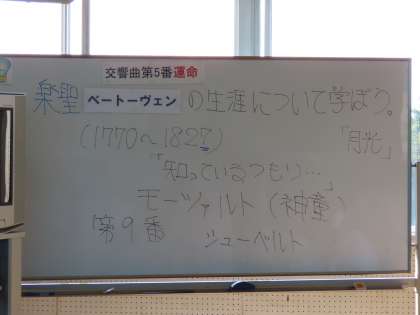 交響曲第5番運命
楽聖 ベートーヴェン の生涯について学ぼう。
(1770〜1827) 「月光」
「知っているつもり…」
モーツァルト (神童)
第9番 シューベルト